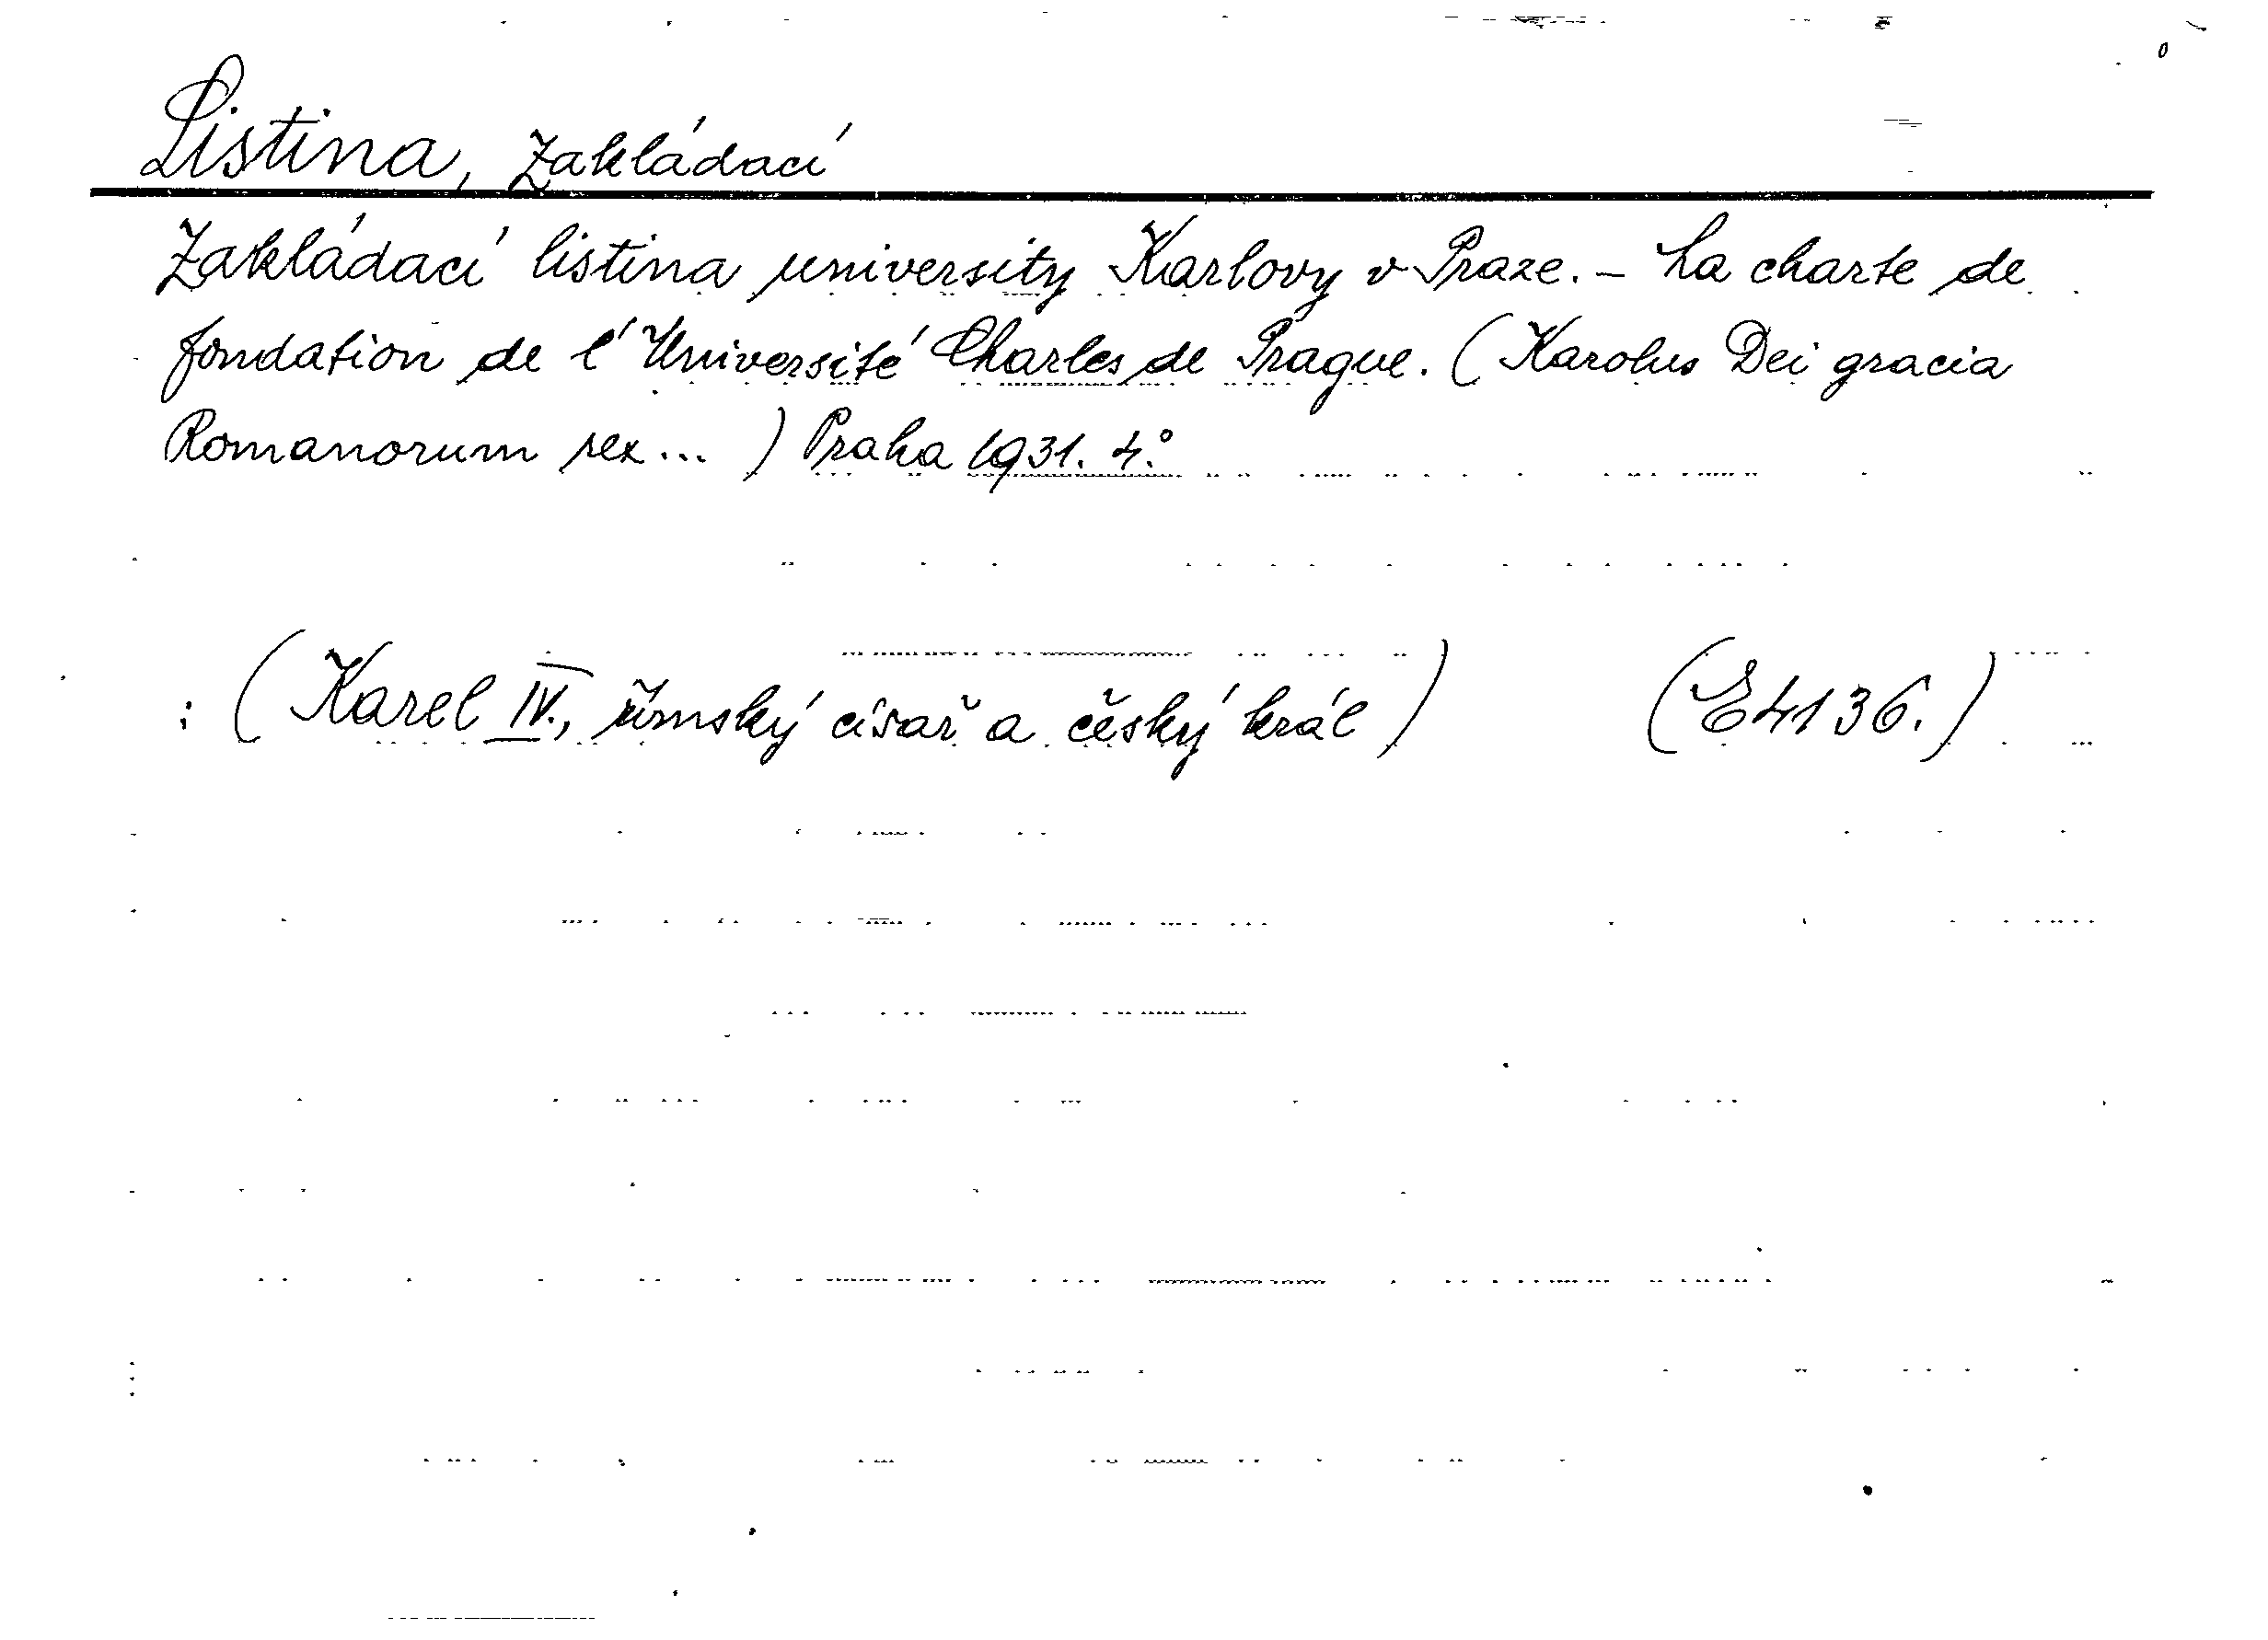 Listina, Zakládací
Zakládací listina university Karlovy v Praze. – La charte de
fondation de l'Université Charles de Prague. (Karolus Dei gracia
Romanorum rex... ) Praha 1931. 4°.
: (Karel IV., římský císař a český král) (E4136.)